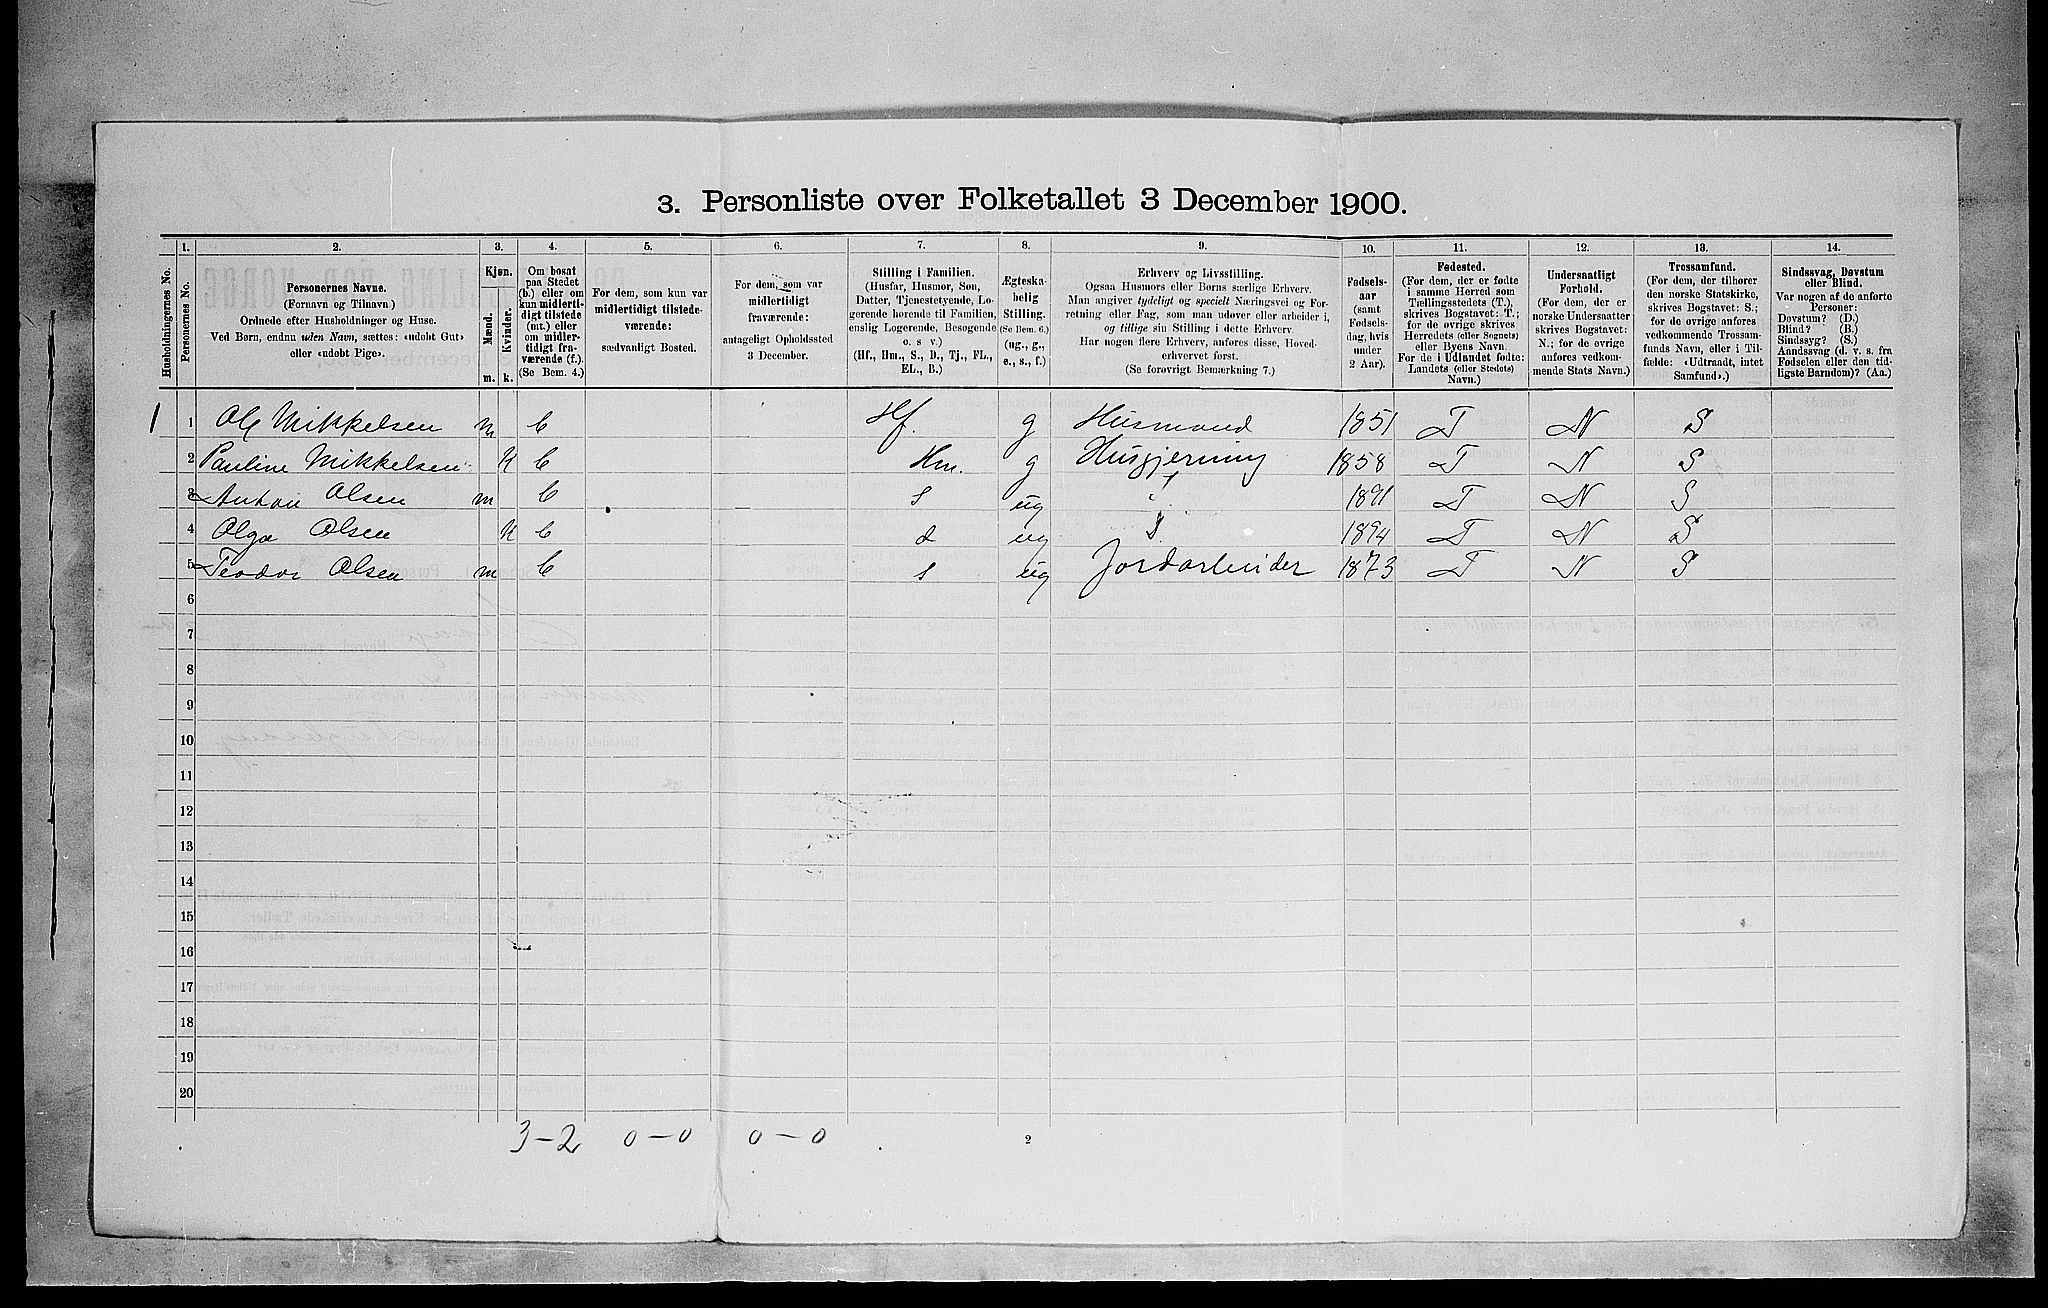 3. Personliste over Folketallet 3 December 1900.
1. 2. 3. 4. 5. 6. 7. 8. 9. 10. 11. 12. 13. 14.
Husholdningernes No.
Personernes No.
Personernes Navne.
(Fornavn og Tilnavn.)
Ordnede efter Husholdninger og Huse.
Ved Børn, endnu uden Navn, sættes: «udøbt Gut»
eller «udøbt Pige».
Kjøn.
Mænd.
Kvinder.
m. k.
Om bosat
paa Stedet
(b.) eller om
kun midlerti-
digt tilstede
(mt.) eller
om midler-
tidigt fra-
værende (f.).
(Se Bem. 4.)
For dem, som kun var
midlertidigt tilstede-
værende:
sædvanligt Bosted.
For dem, som var
midlertidigt
fraværende:
antageligt Opholdssted
3 December.
Stilling i Familien.
(Husfar, Husmor, Søn,
Datter, Tjenestetyende, Lo-
gerende hørende til Familien,
enslig Logerende, Besøgende
o. s. v.)
(Hf., Hm., S., D., Tj., FL.,
EL., B.)
Ægteska-
belig
Stilling.
(Se Bem. 6.)
(ug., g.,
e., s., f.)
Erhverv og Livsstilling.
Ogsaa Husmors eller Børns særlige Erhverv.
Man angiver tydeligt og specielt Næringsvei og For-
retning eller Fag, som man udøver eller arbeider i,
og tillige sin Stilling i dette Erhverv.
Har nogen flere Erhverv, anføres disse, Hoved-
erhvervet først.
(Se forøvrigt Bemærkning 7.)
Fødsels-
aar
(samt
Fødsels-
dag, hvis
under
2 Aar).
Fødested.
(For dem, der er fødte
i samme Herred som
Tællingsstedets (T.),
skrives Bogstavet: T.;
for de øvrige skrives
Herredets (eller Sognets)
eller Byens Navn.
For de i Udlandet fødte:
Landets (eller Stedets)
Navn.)
Undersaatligt
Forhold.
(For dem, der er
norske Undersaatter
skrives Bogstavet:
N.; for de øvrige
anføres vedkom-
mende Stats Navn.)
Trossamfund.
(For dem, der tilhører
den norske Statskirke,
skrives Bogstavet: S.;
for de øvrige anføres
vedkommende Trossam-
funds Navn, eller i Til-
fælde: «Udtraadt, intet
Samfund».)
Sindssvag, Døvstum
eller Blind.
Var nogen af de anførte
Personer:
Døvstum? (D.)
Blind? (B.)
Sindssyg? (S.)
Aandssvag (d. v. s. fra
Fødselen eller den tid-
ligste Barndom)? (Aa.)
1 1 Ole Mikkelsen m b Hf. g Husmand 1851 T N S
2 Pauline Mikkelsen K b Hm. g Husgjerning 1858 T N S
3 Anton Olsen m b s ug 1891 T N S
4 Olga Olsen K b d ug 1894 T N S
5 Teodor Olsen m b s ug Jordarbeider 1873 T N S
6
7
8
9
10
11
12
13
14
15
16
17
18
19
20
3-2 0-0 0-0 2